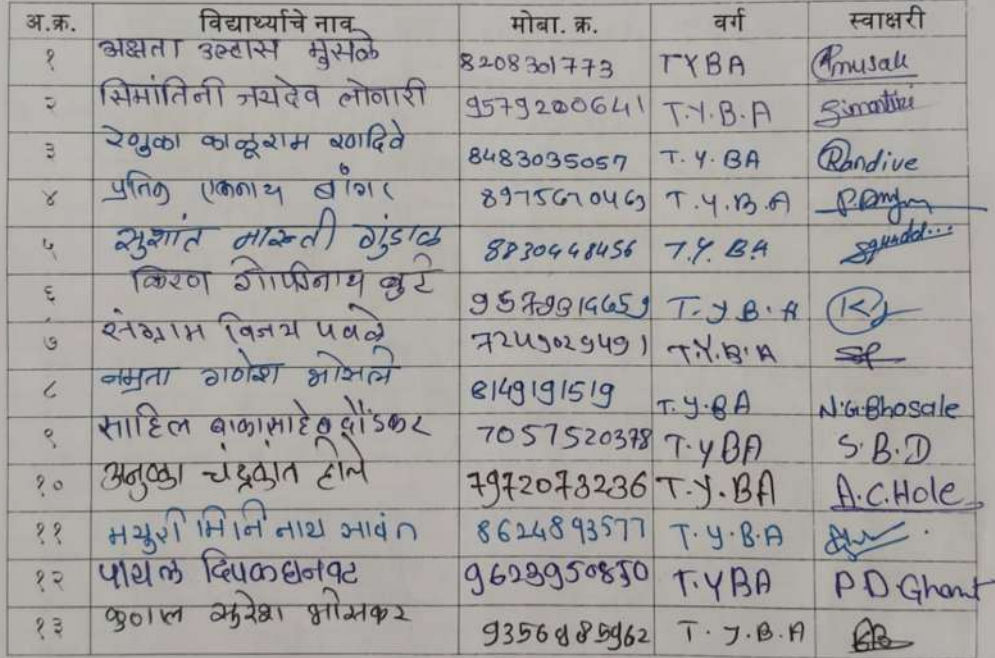 अ.क्र. विद्यार्थ्याचे नाव मोबा. क्र. वर्ग स्वाक्षरी
१ अक्षता उल्हास मुसळे 8208301773 TYBA Amusale
२ सिमांतिनी जयदेव लोणारी 9579200641 T.Y.B.A Simantini
३ रेणुका काळूराम रणदिवे 8483035057 T.Y.BA Randive
४ प्रतिक एकनाथ बांगर T.Y.B.A
५ सुशांत मारुती गुंडाळ 8830448456 T.Y.BA
६ किरण गोपीनाथ बुटे T.Y B.A
७ संग्राम विजय पवळे 7249029491 T.Y.B.A
८ नम्रता गणेश भोसले 8149191519 T.Y.BA N.G.Bhosale
९ साहिल बाळासाहेब दौंडकर 7057520378 T.YBA S.B.D
१० अनुष्का चंद्रकांत होले 7972073236 T.Y.BA A.C.Hole
११ मयुरी मिनिनाथ सावंत 8624893577 T.Y.B.A
१२ पायल दिपक घनवट 9623950850 T.YBA P.D.Ghanvat
१३ कुणाल सुरेश भोसकर T.Y.B.A